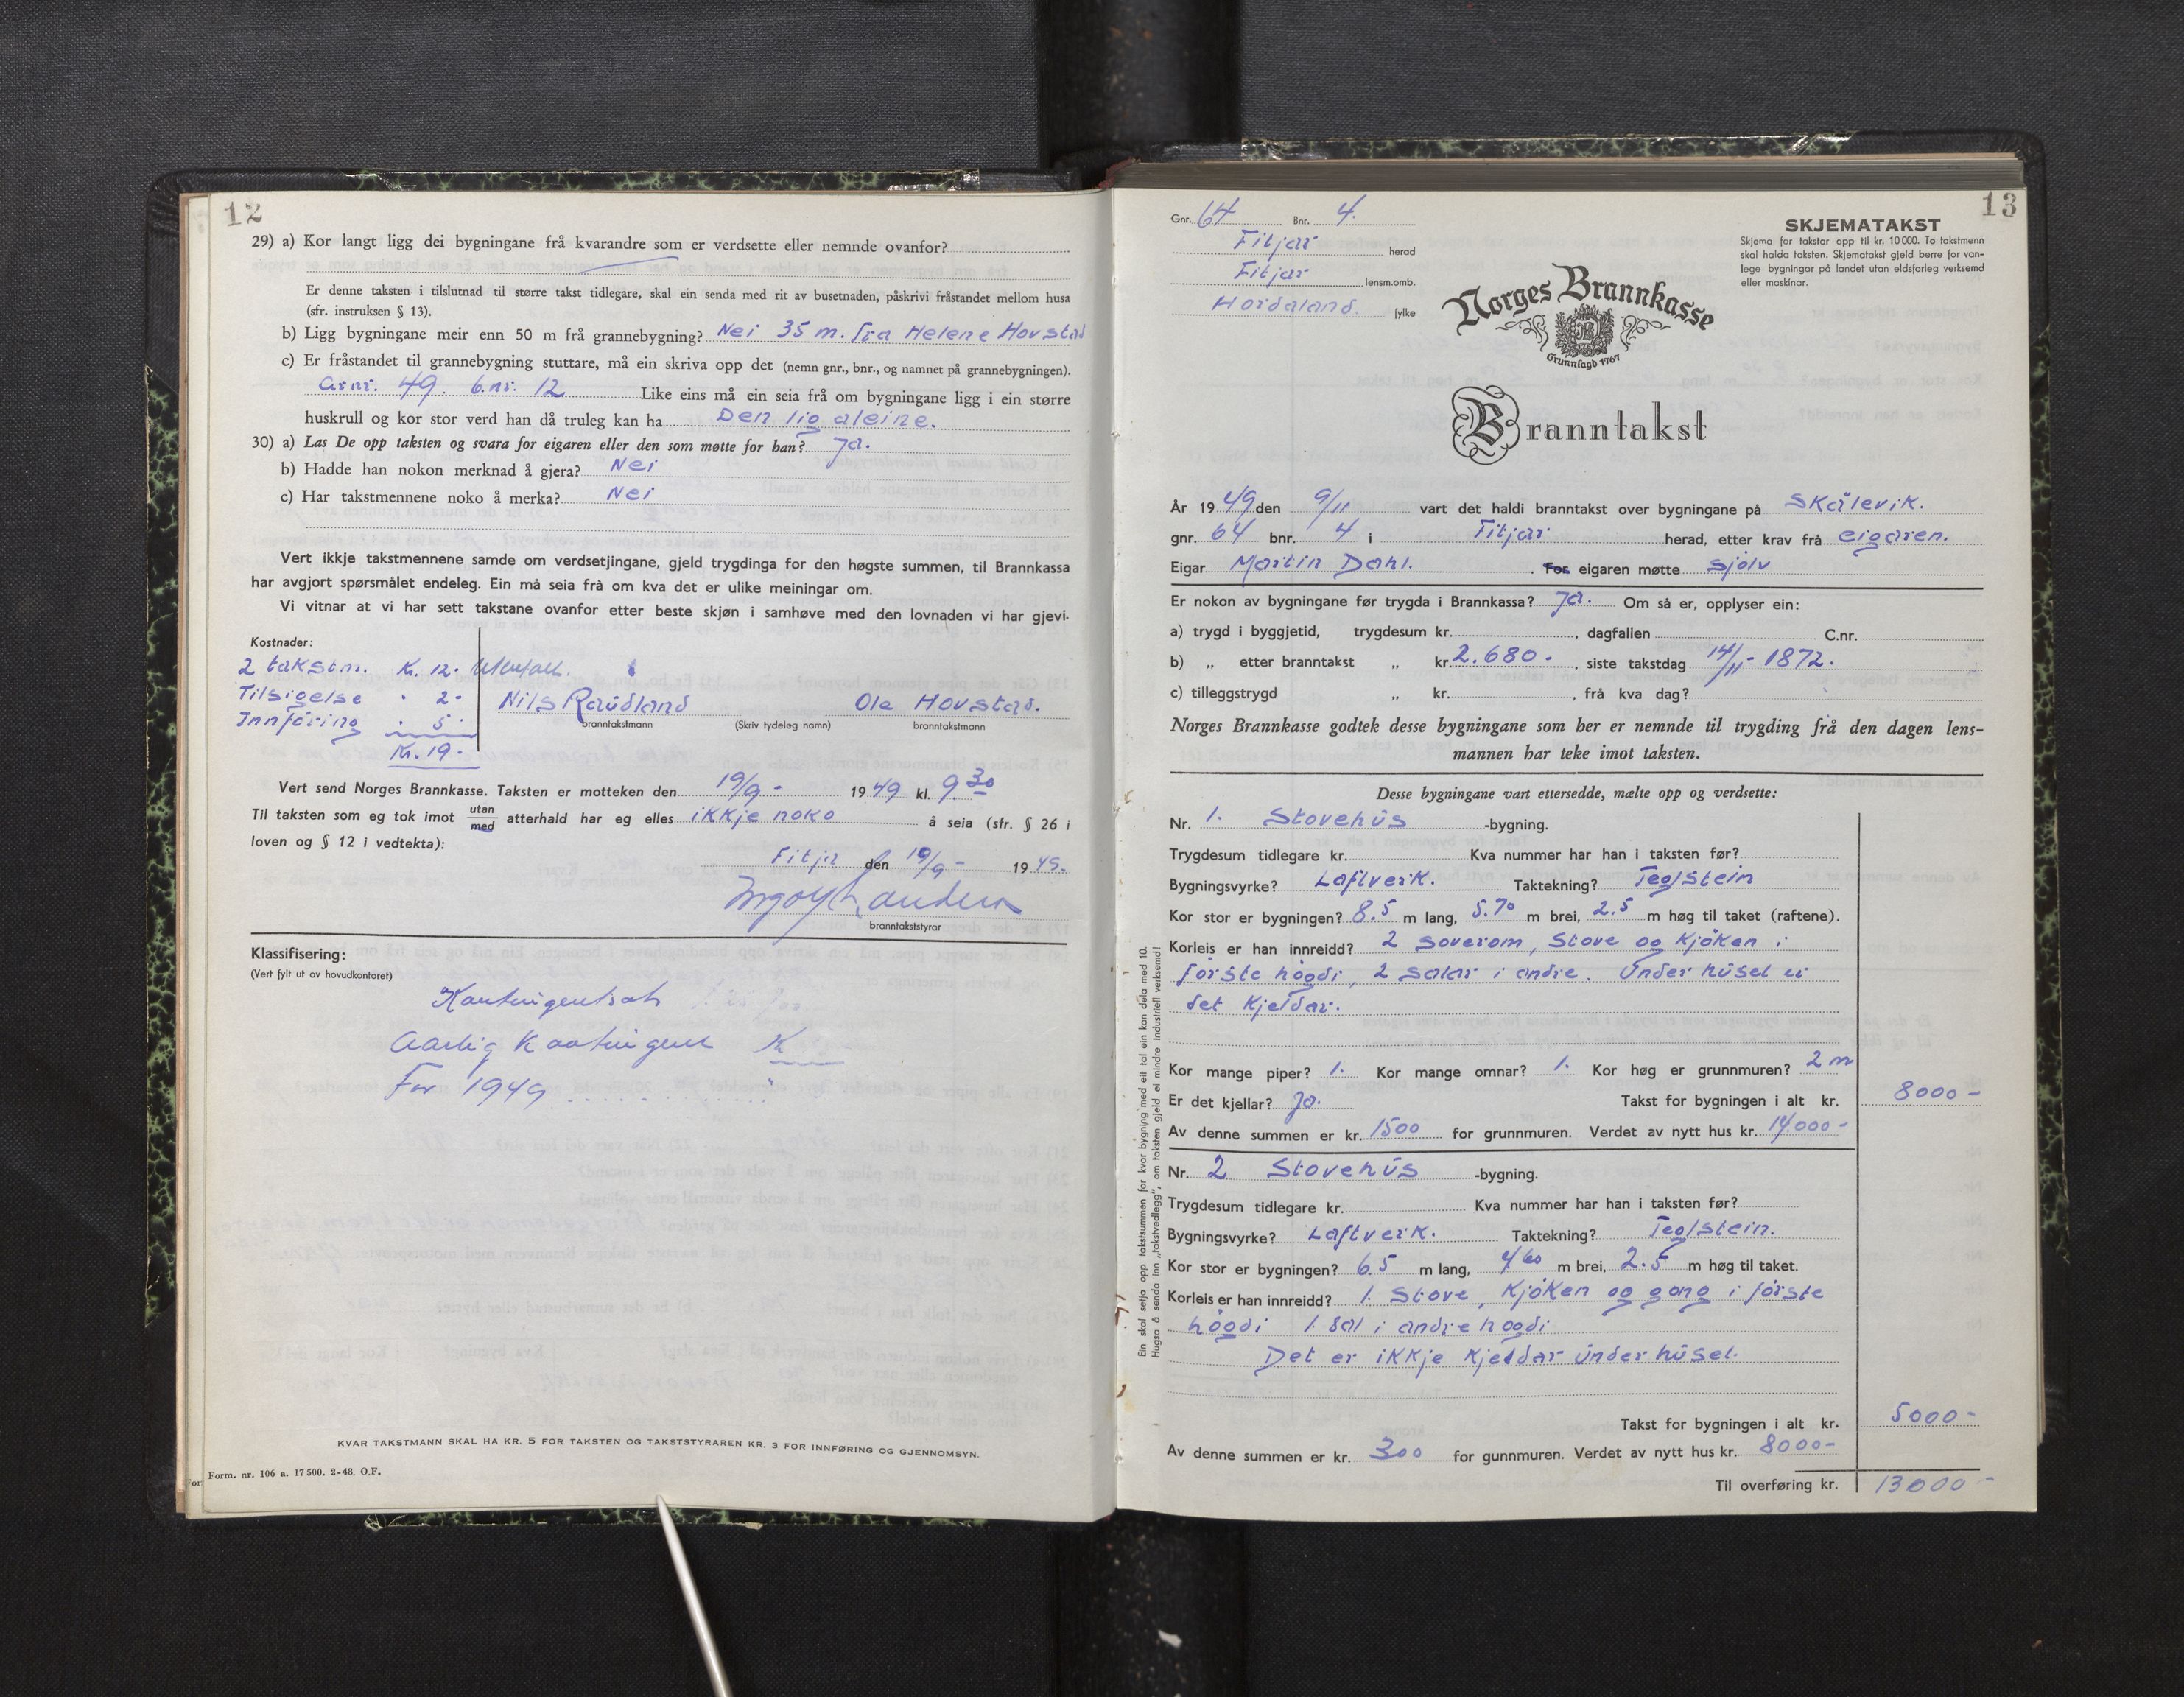 12
29) a) Kor langt ligg dei bygningane frå kvarandre som er verdsette eller nemnde ovanfor?
Er denne taksten i tilslutnad til større takst tidlegare, skal ein senda med rit av busetnaden, påskrivi fråstandet mellom husa
(sfr. instruksen § 13).
b) Ligg bygningane meir enn 50 m frå grannebygning? Nei 35 m. fra Helene Hovstad
c) Er fråstandet til grannebygning stuttare, må ein skriva opp det (nemn gnr., bnr., og namnet på grannebygningen).
G.nr. 49. b.nr. 12 Like eins må ein seia frå om bygningane ligg i ein større
huskrull og kor stor verd han då truleg kan ha Den lig aleine.
30) a) Las De opp taksten og svara for eigaren eller den som møtte for han? Ja.
b) Hadde han nokon merknad å gjera? Nei
c) Har takstmennene noko å merka? Nei
Vert ikkje takstmennene samde om verdsetjingane, gjeld trygdinga for den høgste summen, til Brannkassa
har avgjort spørsmålet endeleg. Ein må seia frå om kva det er ulike meiningar om.
Vi vitnar at vi har sett takstane ovanfor etter beste skjøn i samhøve med den lovnaden vi har gjevi.
Kostnader:
2 takstm. Kr. 12.-
Tilsigelse " 2-
Innføring " 5-
Kr. 19-
Nils Raudland Ola Hovstad.
branntakstmann (Skriv tydeleg namn) branntakstmann
Vert send Norges Brannkasse. Taksten er motteken den 19/9- 1949 kl. 9 30
Til taksten som eg tok imot utan/med atterhald har eg elles ikkje noko å seia (sfr. § 26 i
loven og § 12 i vedtekta):
Fitja den 19/9- 1949.
branntakststyrar
Klassifisering:
(Vert fylt ut av hovudkontoret)
Kontingentsats
Aarlig Kontingent K
For 1949 . . . . . . . . . . "
KVAR TAKSTMANN SKAL HA KR. 5 FOR TAKSTEN OG TAKSTSTYRAREN KR. 3 FOR INNFØRING OG GJENNOMSYN.
Form. nr. 106 a. 17500. 2-48. O.F.
For
13
Gnr. 64 Bnr. 4.
Fitjar herad
Fitjar lensm.omb.
Hordaland. fylke
SKJEMATAKST
Skjema for takstar opp til kr. 10000. To takstmenn
skal halda taksten. Skjematakst gjeld berre for van-
lege bygningar på landet utan eldsfarleg verksemd
eller maskinar.
Norges Brannkasse
Grunnlagd 1767
Branntakst
År 1949 den 9/11 vart det haldi branntakst over bygningane på Skålevik.
gnr. 64 bnr. 4 i Fitjar herad, etter krav frå eigaren.
Eigar Martin Dahl. For eigaren møtte sjølv
Er nokon av bygningane før trygda i Brannkassa? Ja. Om så er, opplyser ein:
a) trygd i byggjetid, trygdesum kr. , dagfallen C.nr.
b) „ etter branntakst „ kr 2.680- , siste takstdag 14/11- 1872.
c) tilleggstrygd „ kr. , frå kva dag?
Norges Brannkasse godtek desse bygningane som her er nemnde til trygding frå den dagen lens-
mannen har teke imot taksten.
Desse bygningane vart ettersedde, mælte opp og verdsette:
Nr. 1. Stovehus -bygning.
Trygdesum tidlegare kr. Kva nummer har han i taksten før?
Bygningsvyrke? Laftverk. Taktekning? Teglstein
Kor stor er bygningen? 8.5 m lang, 5.70 m brei, 2.5 m høg til taket (raftene).
Korleis er han innreidd? 2 soverom, Stove og Kjøken i
første høgdi, 2 salar i andre. Under huset er
det Kjeldar.
Kor mange piper? 1. Kor mange omnar? 1. Kor høg er grunnmuren? 2 m
Er det kjellar? Ja. Takst for bygningen i alt kr. 8000-
Av denne summen er kr. 1500 for grunnmuren. Verdet av nytt hus kr. 14.000-
Nr. 2 Stovehus -bygning.
Trygdesum tidlegare kr. Kva nummer har han i taksten før?
Bygningsvyrke? Laftverk. Taktekning? Teglstein.
Kor stor er bygningen? 6.5 m lang, 4 60 m brei, 2.5 m høg til taket.
Korleis er han innreidd? 1. Stove, Kjøken og gang i første
høgdi 1. sal i andre høgdi
Det er ikkje Kjeldar under huset.
Takst for bygningen i alt kr. 5000-
Av denne summen er kr. 300 for gunnmuren. Verdet av nytt hus kr. 8000-
Til overføring kr. 13000-
Ein skal setja opp takstsummen for kvar bygning med eit tal ein kan dela med 10.
Hugsa å senda inn „takstvedlegg", om taksten gjeld ei mindre industriell verksemd!